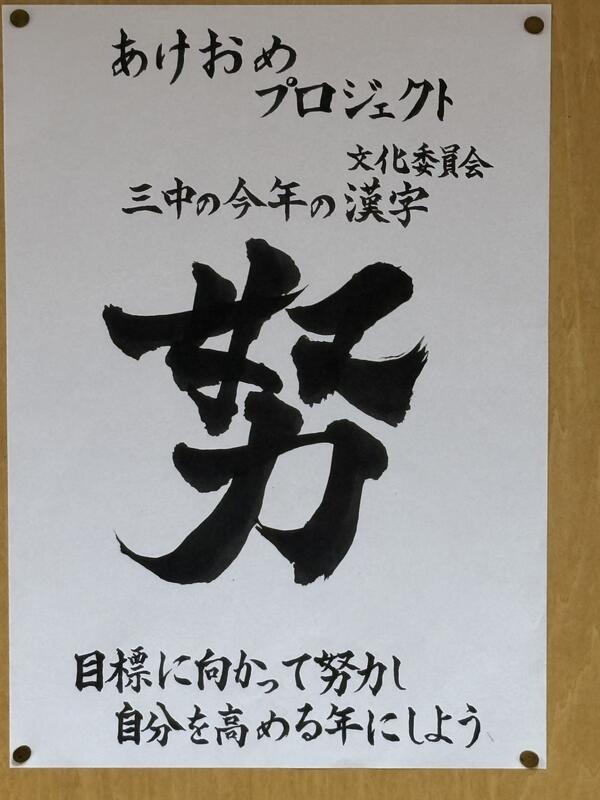 あけおめ
プロジェクト
文化委員会
三中の今年の漢字
努
目標に向かって努力し
自分を高める年にしよう